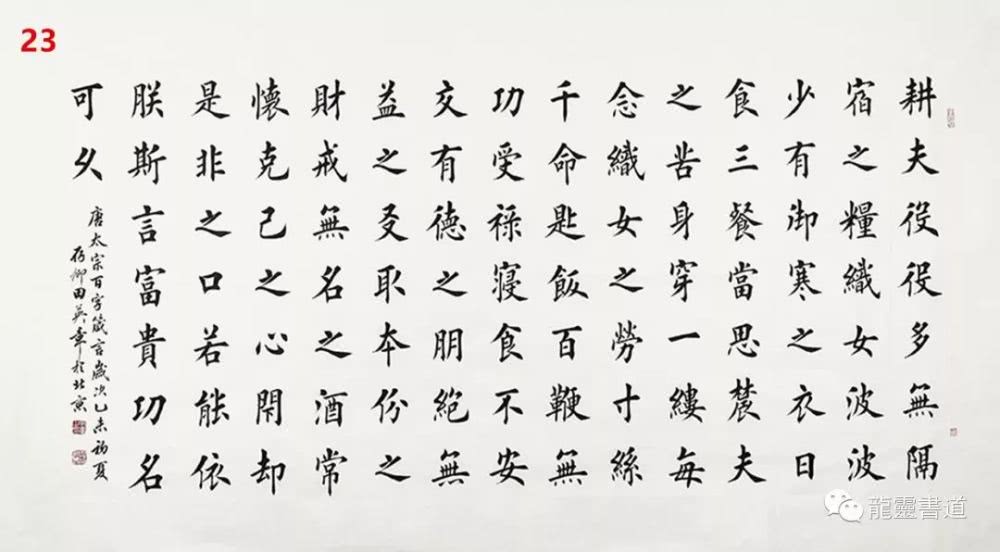 23
耕夫役役多無隔
宿之糧織女波波
少有御寒之衣日
食三餐當思農夫
之苦身穿一縷每
念織女之勞寸絲
千命匙飯百鞭無
功受祿寢食不安
交有德之朋絕無
益之友取本份之
財戒無名之酒常
懷克己之心閉却
是非之口若能依
朕斯言富貴功名
可久
唐太宗百字箴言歲次乙未初夏
存卿田英章於北京
龍靈書道